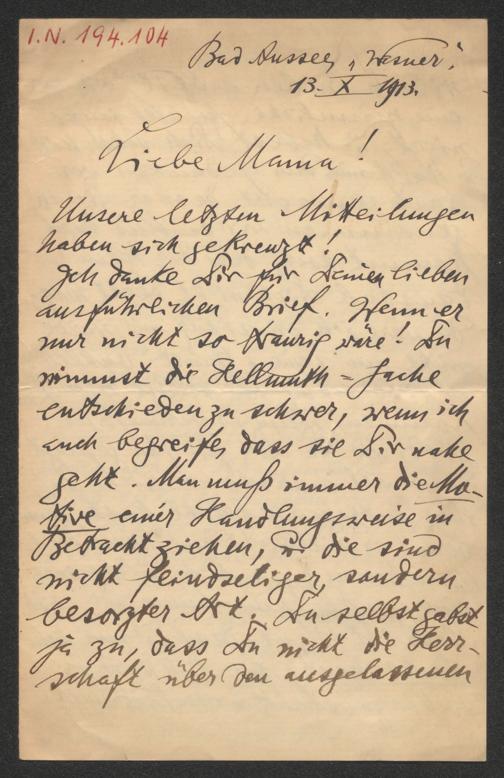 I.N. 194.104
Bad Aussee, „Wesner“.
13. X 1913.
Liebe Mama!
Unsere letzten Mitteilungen
haben sich gekreuzt!
Ich danke Dir für Deinen lieben
ausführlichen Brief. Wenn er
nur nicht so traurig wäre! Du
nimmst die Hellmuth-Sache
entschieden zu schwer, wenn ich
auch begreife, dass sie Dir nahe
geht. Man muß immer die Mo-
tive einer Handlungsweise in
Betracht ziehen, u. die sind
nicht feindseliger, sondern
besorgter Art. Du selbst gabst
ja zu, dass Du nicht die Herr-
schaft über den ausgelassenen